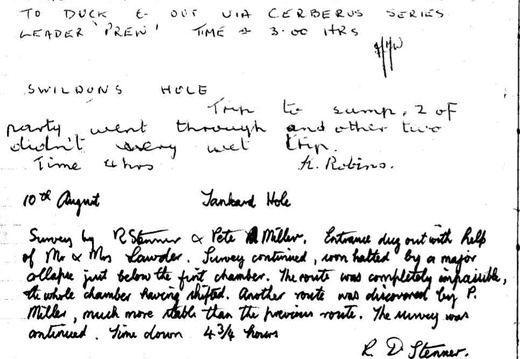 TO DUCK & OUT VIA CERBERUS SERIES
LEADER 'PREW' TIME 3.00 HRS
SWILDONS HOLE
Trip to sump, 2 of
party went through and other two
didn't very wet trip.
Time 4 hrs K. Robins.
10th August Tankard Hole
Survey by R Stenner & Pete Miller. Entrance dug out with help
of Mr & Mrs Lawder. Survey continued, soon halted by a major
collapse just below the first chamber. The route was completely impassible,
the whole chamber having shifted. Another route was discovered by P.
Miller, much more stable than the previous route. The survey was
continued. Time down 4 3/4 hours
R D Stenner.